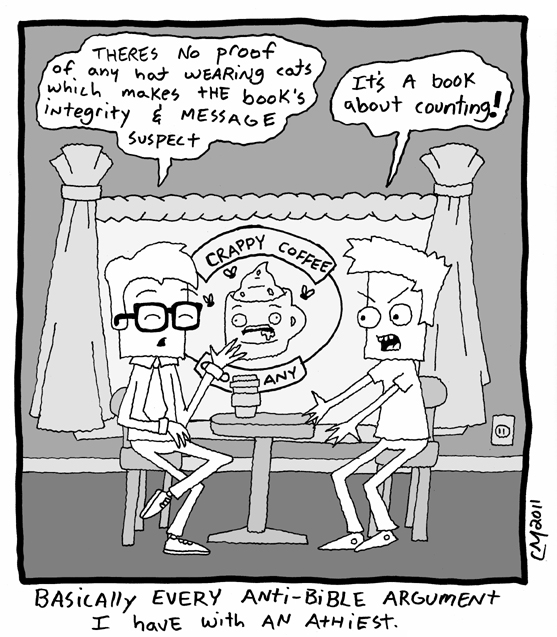 THERES No proof
of any hat WEARING cats
which makes THE book's
integrity & MESSAGE
SUSPECT
It's A book
about counting!
CRAPPY COFFEE
ANY
CM2011
BASICALLY EVERY ANTI-BIBLE ARGUMENT
I have with AN AtHiEST.